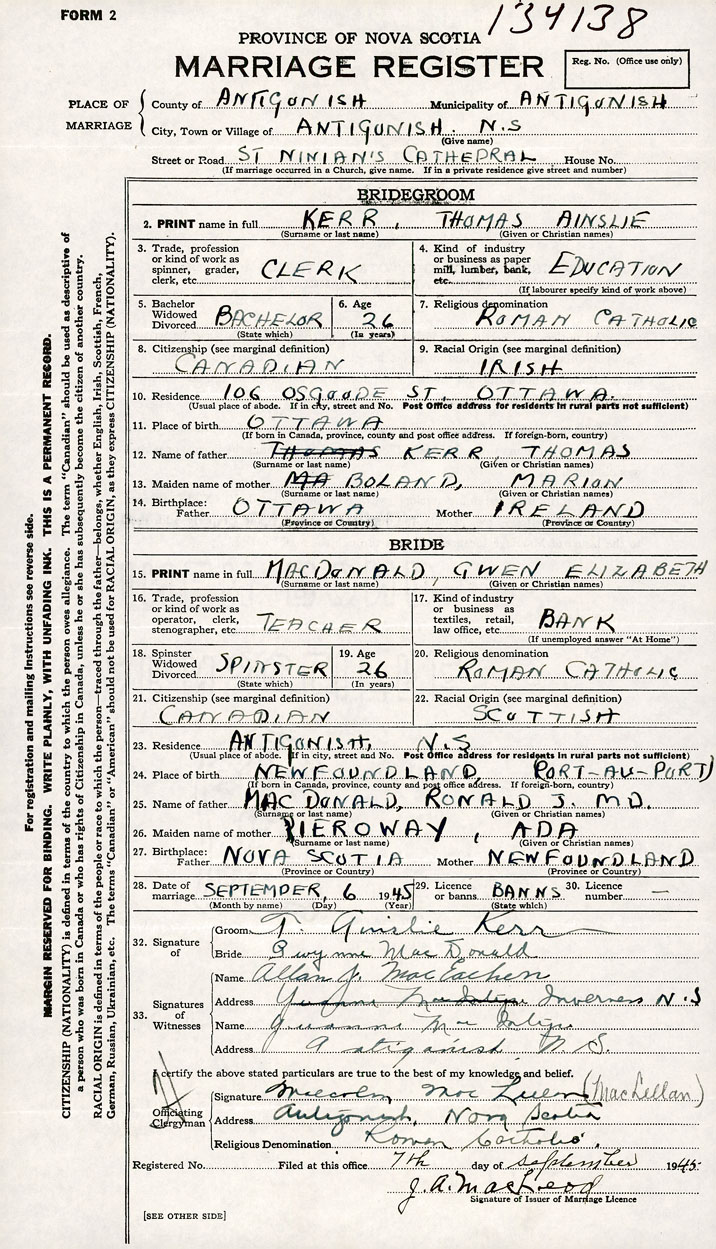 FORM 2
134138
PROVINCE OF NOVA SCOTIA
MARRIAGE REGISTER
Reg. No. (Office use only)
PLACE OF MARRIAGE
County of ANTIGONISH Municipality of ANTIGONISH
City, Town or Village of ANTIGONISH. N.S
(Give name)
Street or Road ST NINIAN'S CATHEDRAL House No.
(If marriage occurred in a Church, give name. If in a private residence give street and number)
BRIDEGROOM
2. PRINT name in full KERR, THOMAS AINSLIE
(Surname or last name) (Given or Christian names)
3. Trade, profession or kind of work as spinner, grader, clerk, etc. CLERK
4. Kind of industry or business as paper mill, lumber, bank, etc. EDUCATION
(If labourer specify kind of work above)
5. Bachelor Widowed Divorced BACHELOR (State which)
6. Age 26 (In years)
7. Religious denomination ROMAN CATHOLIC
8. Citizenship (see marginal definition) CANADIAN
9. Racial Origin (see marginal definition) IRISH
10. Residence 106 OSGOODE ST, OTTAWA.
(Usual place of abode. If in city, street and No. Post Office address for residents in rural parts not sufficient)
11. Place of birth OTTAWA
(If born in Canada, province, county and post office address. If foreign-born, country)
12. Name of father THOMAS KERR, THOMAS
(Surname or last name) (Given or Christian names)
13. Maiden name of mother MA BOLAND, MARION
(Surname or last name) (Given or Christian names)
14. Birthplace: Father OTTAWA Mother IRELAND
(Province or Country) (Province or Country)
BRIDE
15. PRINT name in full MACDONALD, GWEN ELIZABETH
(Surname or last name) (Given or Christian names)
16. Trade, profession or kind of work as operator, clerk, stenographer, etc. TEACHER
17. Kind of industry or business as textiles, retail, law office, etc. BANK
(If unemployed answer "At Home")
18. Spinster Widowed Divorced SPINSTER (State which)
19. Age 26 (In years)
20. Religious denomination ROMAN CATHOLIC
21. Citizenship (see marginal definition) CANADIAN
22. Racial Origin (see marginal definition) SCOTTISH
23. Residence ANTIGONISH, N.S
(Usual place of abode. If in city, street and No. Post Office address for residents in rural parts not sufficient)
24. Place of birth NEWFOUNDLAND, PORT-AU-PORT)
(If born in Canada, province, county and post office address. If foreign-born, country)
25. Name of father MAC DONALD, RONALD J. MD.
(Surname or last name) (Given or Christian names)
26. Maiden name of mother PIEROWAY, ADA
(Surname or last name) (Given or Christian names)
27. Birthplace: Father NOVA SCOTIA Mother NEWFOUNDLAND
(Province or Country) (Province or Country)
28. Date of marriage SEPTEMBER, 6 1945
(Month by name) (Day) (Year)
29. Licence or banns BANNS (State which)
30. Licence number —
32. Signature of
Groom T. Ainslie Kerr
Bride Gwynne MacDonald
33. Signatures of Witnesses
Name Allan J. MacEachen
Address Inverness N.S
Name
Address Antigonish, N.S.
I certify the above stated particulars are true to the best of my knowledge and belief.
Officiating Clergyman
Signature Malcolm Mac Lellan (MacLellan)
Address Antigonish, Nova Scotia
Religious Denomination Roman Catholic.
Registered No. Filed at this office 7th day of September 1945
J. A. MacLeod
Signature of Issuer of Marriage Licence
[SEE OTHER SIDE]
For registration and mailing instructions see reverse side.
MARGIN RESERVED FOR BINDING. WRITE PLAINLY, WITH UNFADING INK. THIS IS A PERMANENT RECORD.
CITIZENSHIP (NATIONALITY) is defined in terms of the country to which the person owes allegiance. The term "Canadian" should be used as descriptive of
a person who was born in Canada or who has rights of Citizenship in Canada, unless he or she has subsequently become the citizen of another country.
RACIAL ORIGIN is defined in terms of the people or race to which the person—traced through the father—belongs, whether English, Irish, Scottish, French,
German, Russian, Ukrainian, etc. The terms "Canadian" or "American" should not be used for RACIAL ORIGIN, as they express CITIZENSHIP (NATIONALITY).